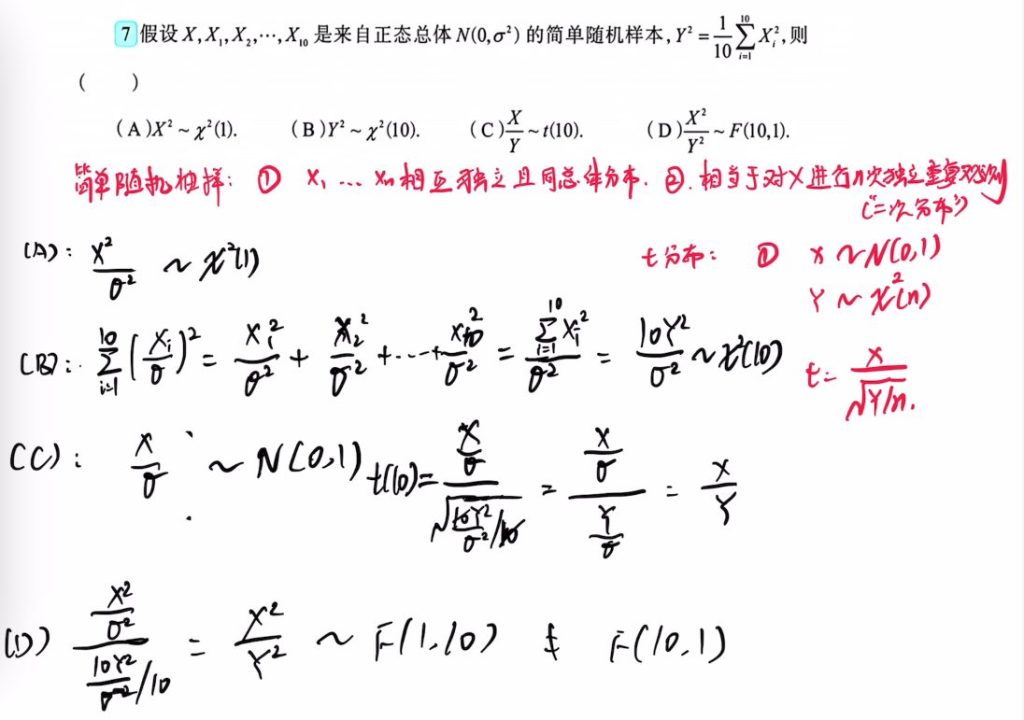 7 假设 X,X₁,X₂,⋯,X₁₀ 是来自正态总体 N(0,σ²) 的简单随机样本,Y² = \frac{1}{10}\sum_{i=1}^{10} X_i²,则
( )
(A)X² ~ χ²(1). (B)Y² ~ χ²(10). (C)\frac{X}{Y} ~ t(10). (D)\frac{X²}{Y²} ~ F(10,1).
简单随机抽样: ① X₁ … Xn相互独立且同总体分布. ②.相当于对X进行n次独立重复观测
("二次分布")
(A): \frac{X²}{σ²} ~ χ²(1)
t分布: ① X ~ N(0,1)
Y ~ χ²(n)
t= \frac{X}{\sqrt{Y/n}}.
(B): \sum_{i=1}^{10} (\frac{X_i}{σ})² = \frac{X₁²}{σ²} + \frac{X₂²}{σ²} +…+ \frac{X₁₀²}{σ²} = \frac{\sum_{i=1}^{10} X_i²}{σ²} = \frac{10Y²}{σ²} ~ χ²(10)
(C): \frac{X}{σ} ~ N(0,1) t(10)= \frac{\frac{X}{σ}}{\sqrt{\frac{10Y²}{σ²}/10}} = \frac{\frac{X}{σ}}{\frac{Y}{σ}} = \frac{X}{Y}
(D) \frac{\frac{X²}{σ²}}{\frac{10Y²}{σ²}/10} = \frac{X²}{Y²} ~ F(1,10) ≠ F(10,1)